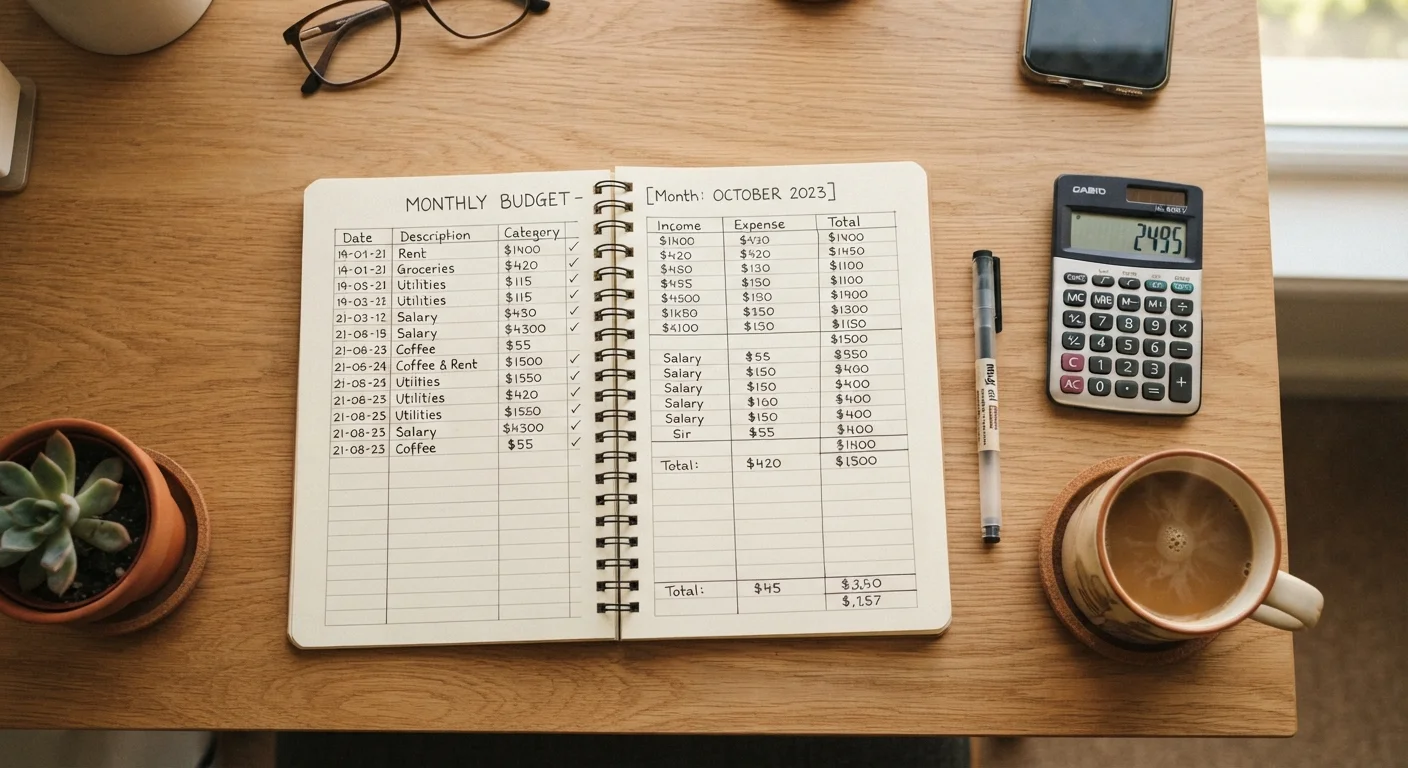 MONTHLY BUDGET –
Date Description Category
19-01-21 Rent $1400 ✓
19-01-21 Groceries $420 ✓
19-05-21 Utilities $115 ✓
19-03-22 Utilities $115 ✓
21-03-12 Salary $430 ✓
21-08-19 Salary $4300 ✓
21-08-23 Coffee $55
21-06-24 Coffee & Rent $1500 ✓
21-08-25 $1550 ✓
21-08-23 Utilities $420 ✓
21-08-25 Utilities $1550 ✓
21-08-23 Salary ✓
21-08-23 Coffee $55 ✓
[Month: OCTOBER 2023]
Income Expense Total
$1400 $1400
$420 $1450
$130 $1100
$150 $1100
$4500 $1900
$150 $1300
$4100 $150 $1150
$1500
Salary $55 $550
Salary $150 $400
Salary $150 $400
Salary $160 $400
Salary $150 $400
Sir $55 $400
Total: $420 $1500
Total: $45
2495
MC M-
7 8 9 ×
4 5 6 −
C 1 2 3
AC 0 · = +